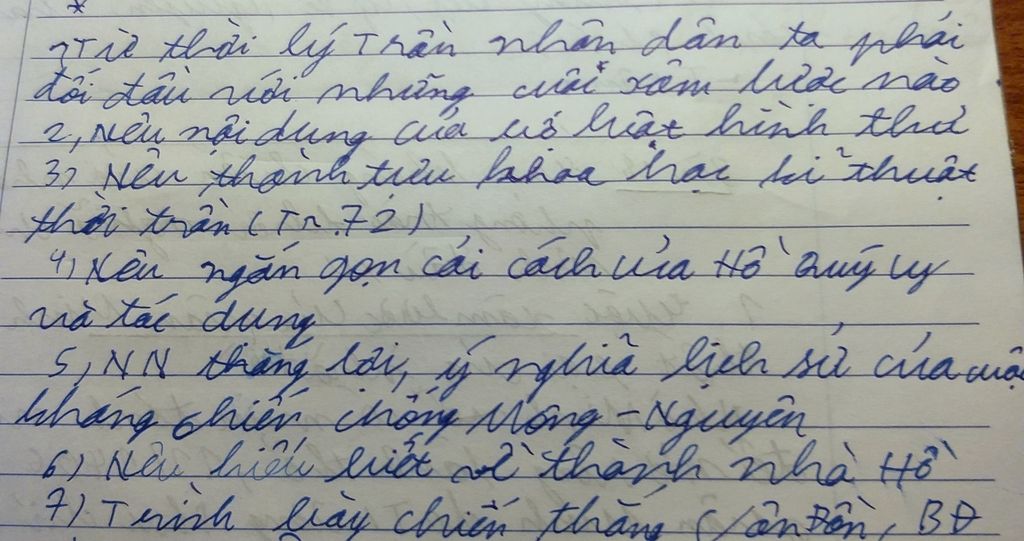 1, Từ thời lý Trần nhân dân ta phải
đối đầu với những cuộc xâm lược nào
2, Nêu nội dung của bộ luật hình thư
3) Nêu thành tựu khoa học kĩ thuật
thời trần (Tr.72)
4) Nêu ngắn gọn cải cách của Hồ Quý Ly
và tác dụng
5, NN thắng lợi, ý nghĩa lịch sử của cuộc
kháng chiến chống Mông - Nguyên
6) Nêu hiểu biết về thành nhà Hồ
7) Trình bày chiến thắng (Vân Đồn, BĐ